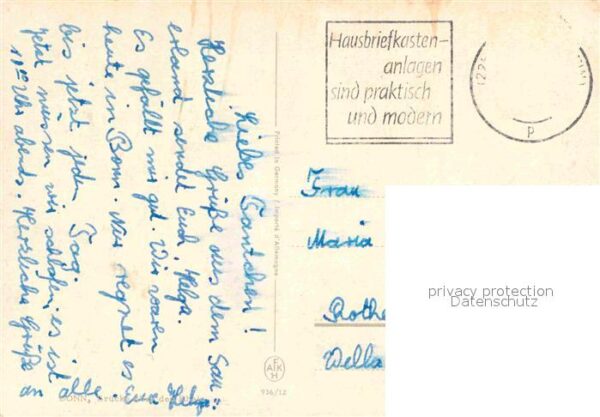 Liebes Tantchen!
Herzliche Grüße aus dem Sau=
erland sendet Euch Helga.
Es gefällt mir gut. Wir waren
heute in Bonn. Nur regnet es
bis jetzt jeden Tag.
Jetzt müssen wir schlafen, es ist
Uhr abends. Herzliche Grüße an
alle. Eure Helga
Printed in Germany / Importé d'Allemagne
AFKH
926/12
BONN,
Hausbriefkasten-
anlagen
sind praktisch
und modern
p
Frau
Maria
Rothe
Wella
privacy protection
Datenschutz